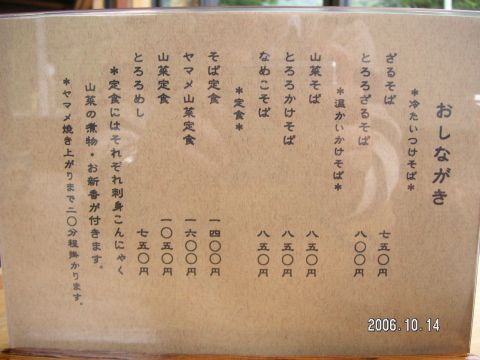 おしながき
＊冷たいつけそば＊
ざるそば 七五〇円
とろろざるそば 八〇〇円
＊温かいかけそば＊
山菜そば 八五〇円
とろろかけそば 八五〇円
なめこそば 八五〇円
＊定食＊
そば定食 一四〇〇円
ヤマメ山菜定食 一六〇〇円
山菜定食 一〇五〇円
とろろめし 七五〇円
＊定食にはそれぞれ刺身こんにゃく
山菜の煮物・お新香が付きます。
＊ヤマメ焼き上がりまで二〇分程掛かります。
2006.10.14